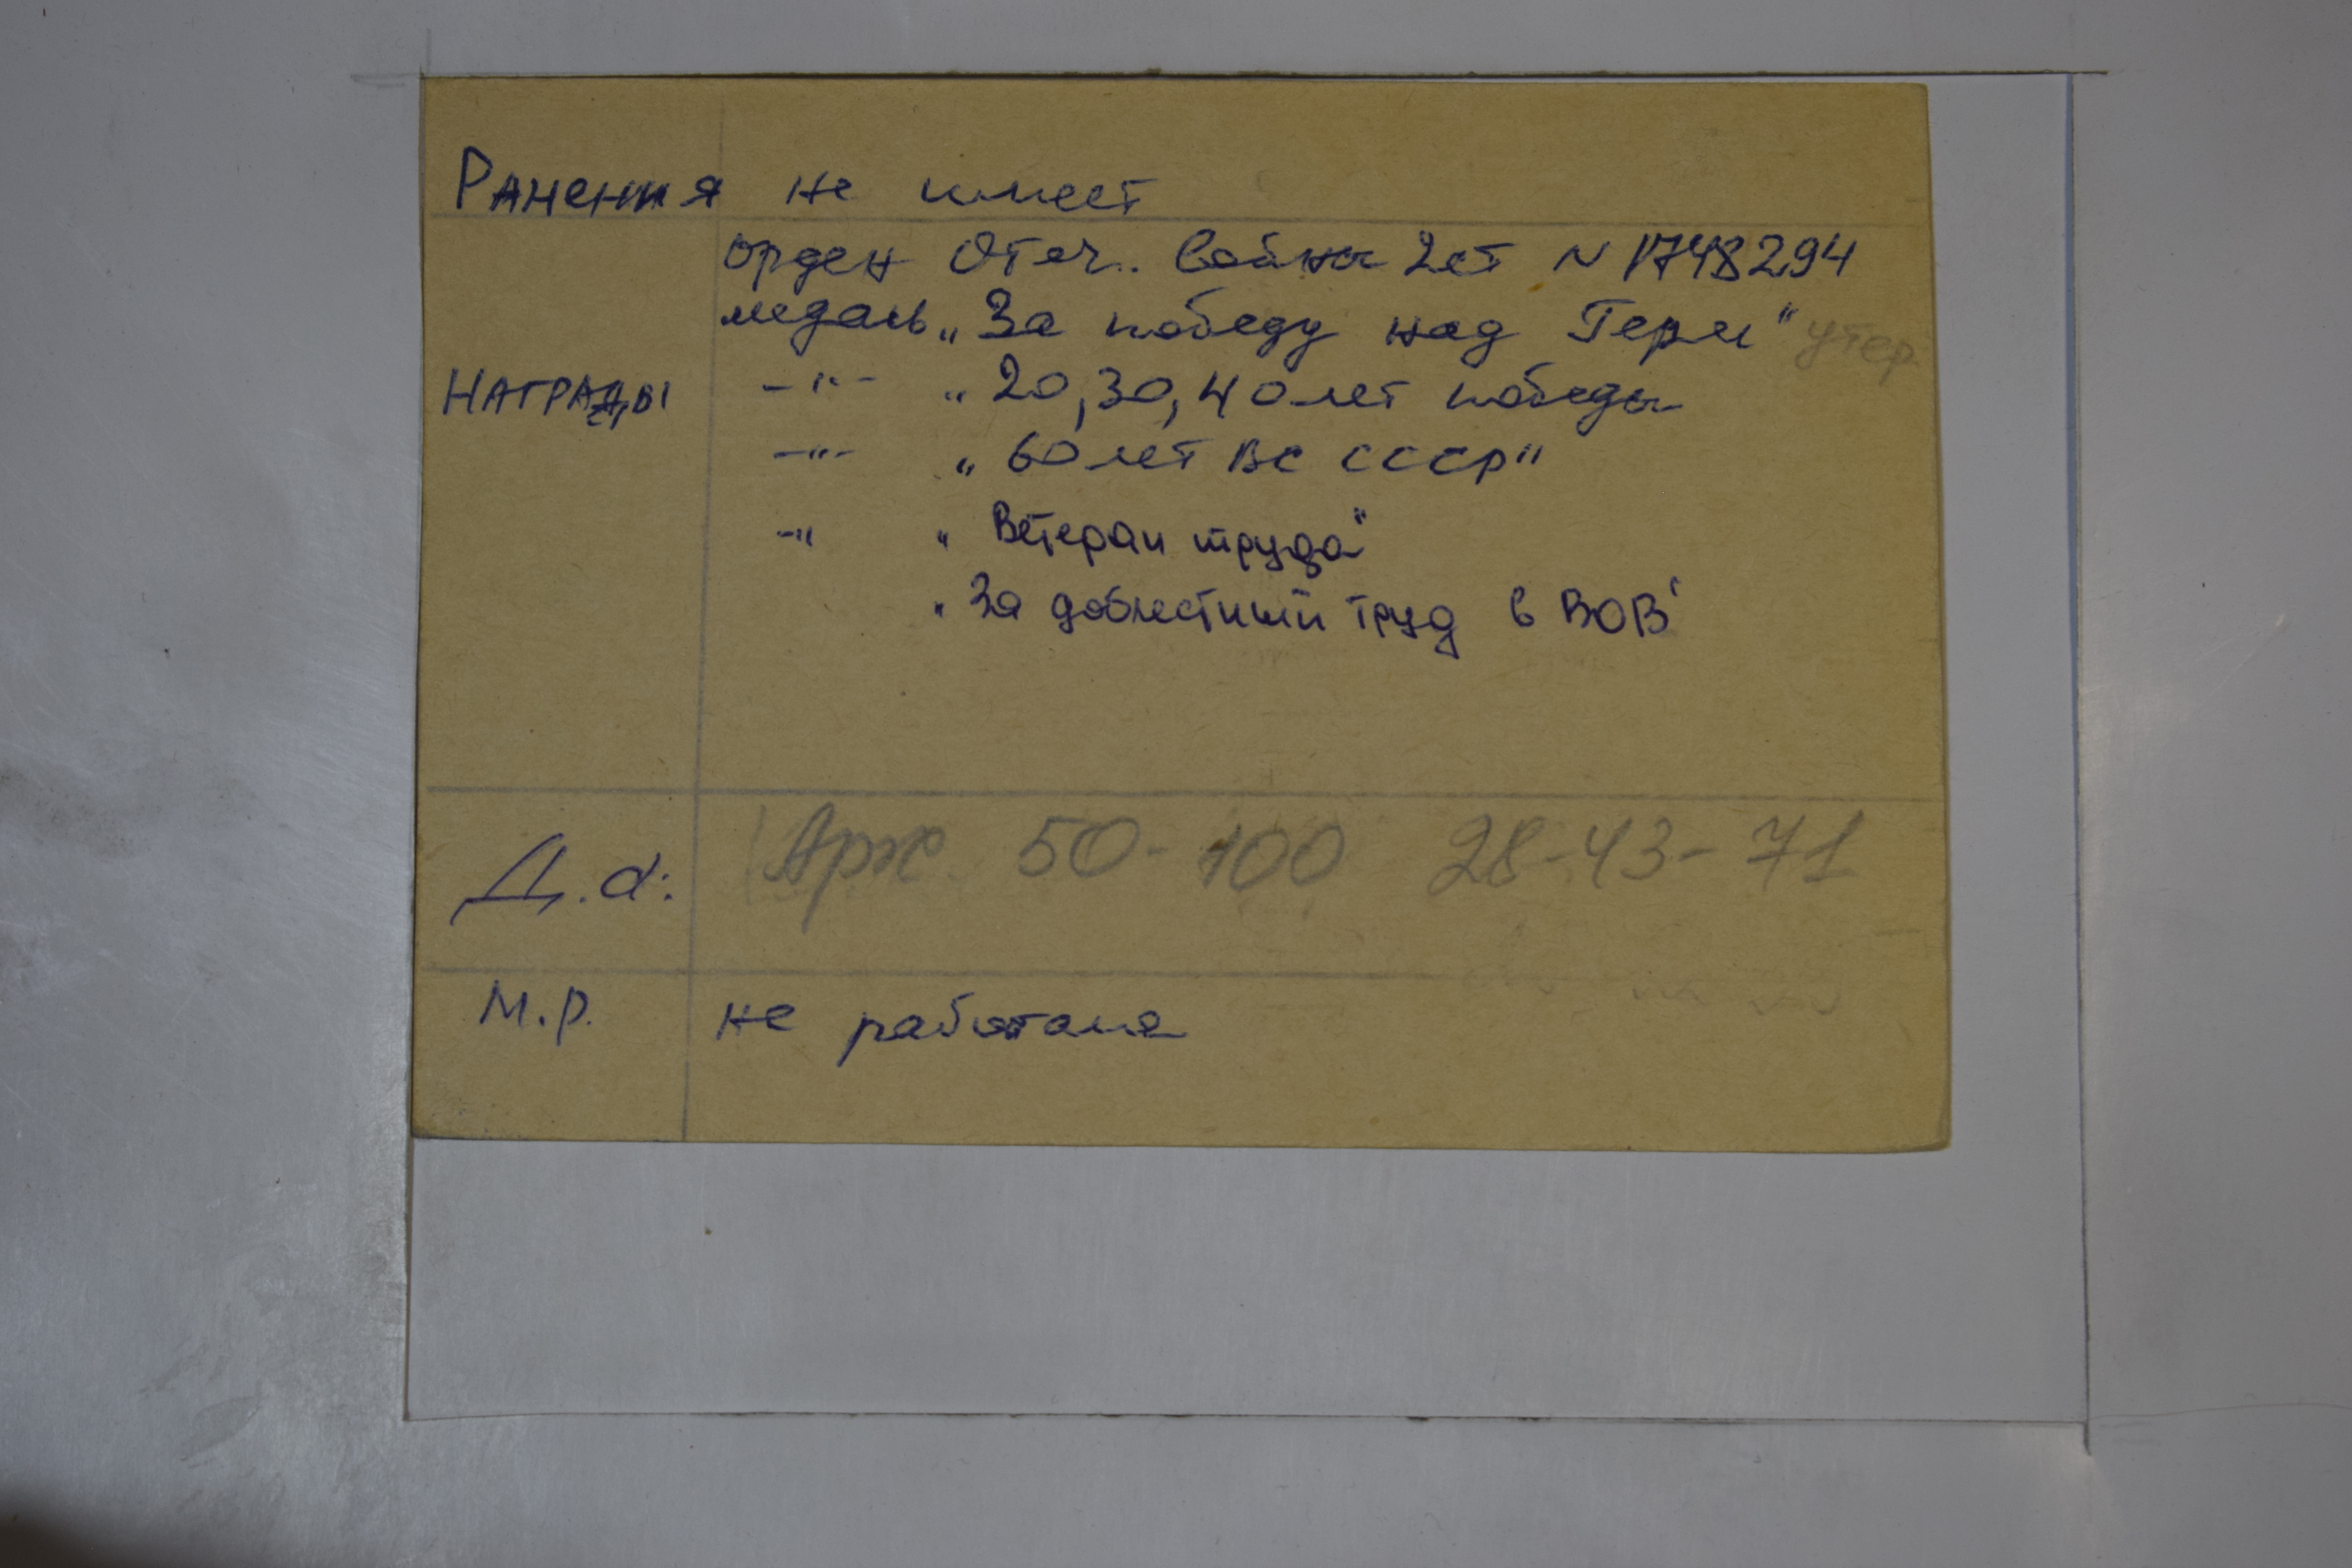 Ранения не имеет
орден Отеч. Войны 2ст N 1748294
медаль „За победу над Герм" утер.
Награды -"- „20, 30, 40 лет победы
-"- „60 лет ВС СССР"
-" „Ветеран труда"
„За доблестный труд в ВОВ"
Д.а: Арх. 50-100 28-43-71
М.р. не работала